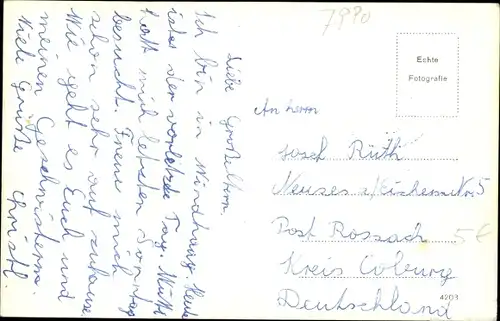 7990
Echte
Fotografie
Liebe Großeltern.
Ich bin in Windhaag. Heute
ist der vorletzte Tag. Mutti
hatt mich letzten Sonntag
besucht. Freue mich
schon sehr auf zuhause.
Wie geht es Euch und
meinen Geschwistern.
Viele Grüße Christl
An Herrn
Josef Rüth
Neuses a/Eichenstr. 5
Post Rossach
Kreis Coburg
Deutschland
5€
4201